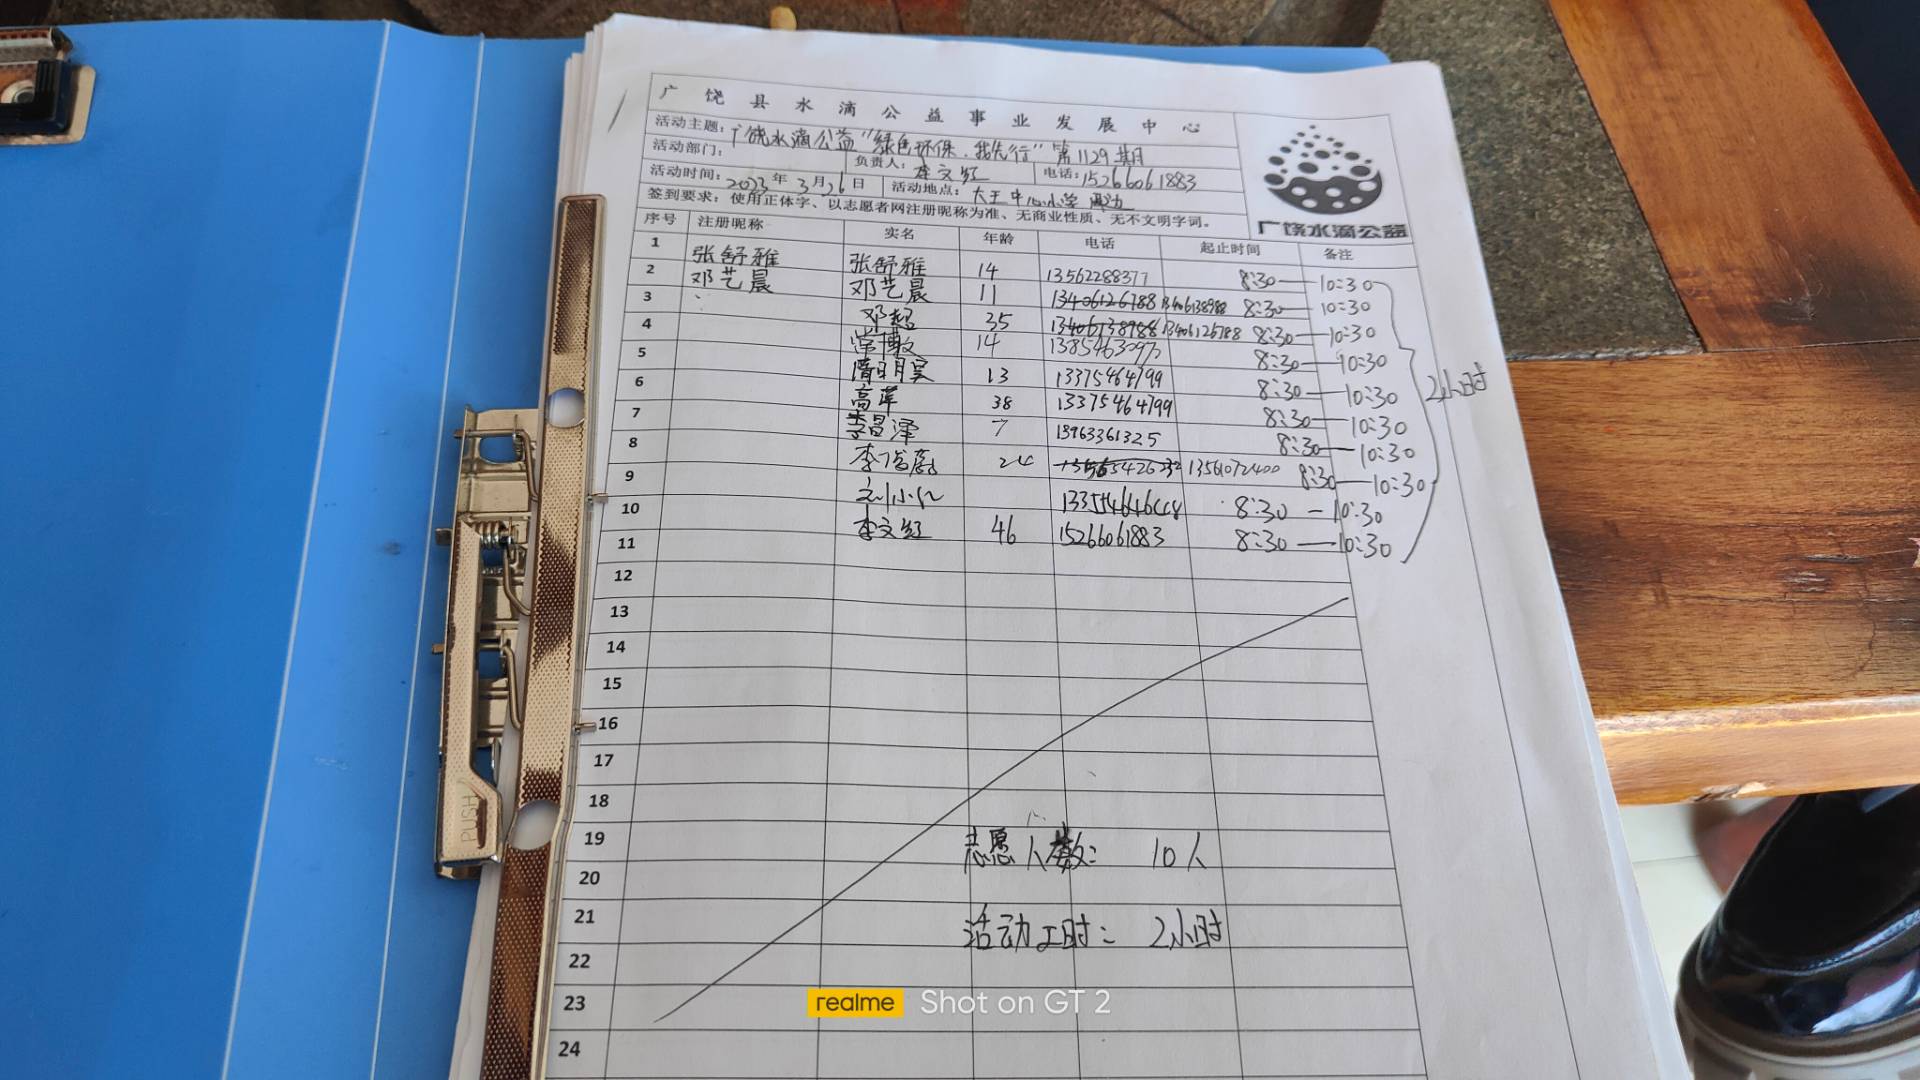 广饶县水滴公益事业发展中心
活动主题：广饶水滴公益"绿色环保.我先行"第1129期
活动部门： 负责人：李文红 电话：15266061883
活动时间：2023年3月26日 活动地点：大王中心小学周边
签到要求：使用正体字、以志愿者网注册昵称为准、无商业性质、无不文明字词。
广饶水滴公益
序号 注册昵称 实名 年龄 电话 起止时间 备注
1 张舒雅 张舒雅 14 13562288377 8:30—10:30
2 邓艺晨 邓艺晨 11 13406126788 13406138988 8:30—10:30
3 邓超 35 13406138988 13406126788 8:30—10:30
4 常博 14 8:30—10:30
5 隋明昊 13 13375464799 8:30—10:30
6 高萍 38 13375464799 8:30—10:30
7 李昌泽 7 13963361325 8:30—10:30
8 李 24 13561072400 8:30—10:30
9 刘小 8:30—10:30
10 李文红 46 15266061883 8:30—10:30
2小时
11
12
13
14
15
16
17
18
19
志愿人数： 10人
20
21
活动工时： 2小时
22
23
24
PUSH
realme Shot on GT 2